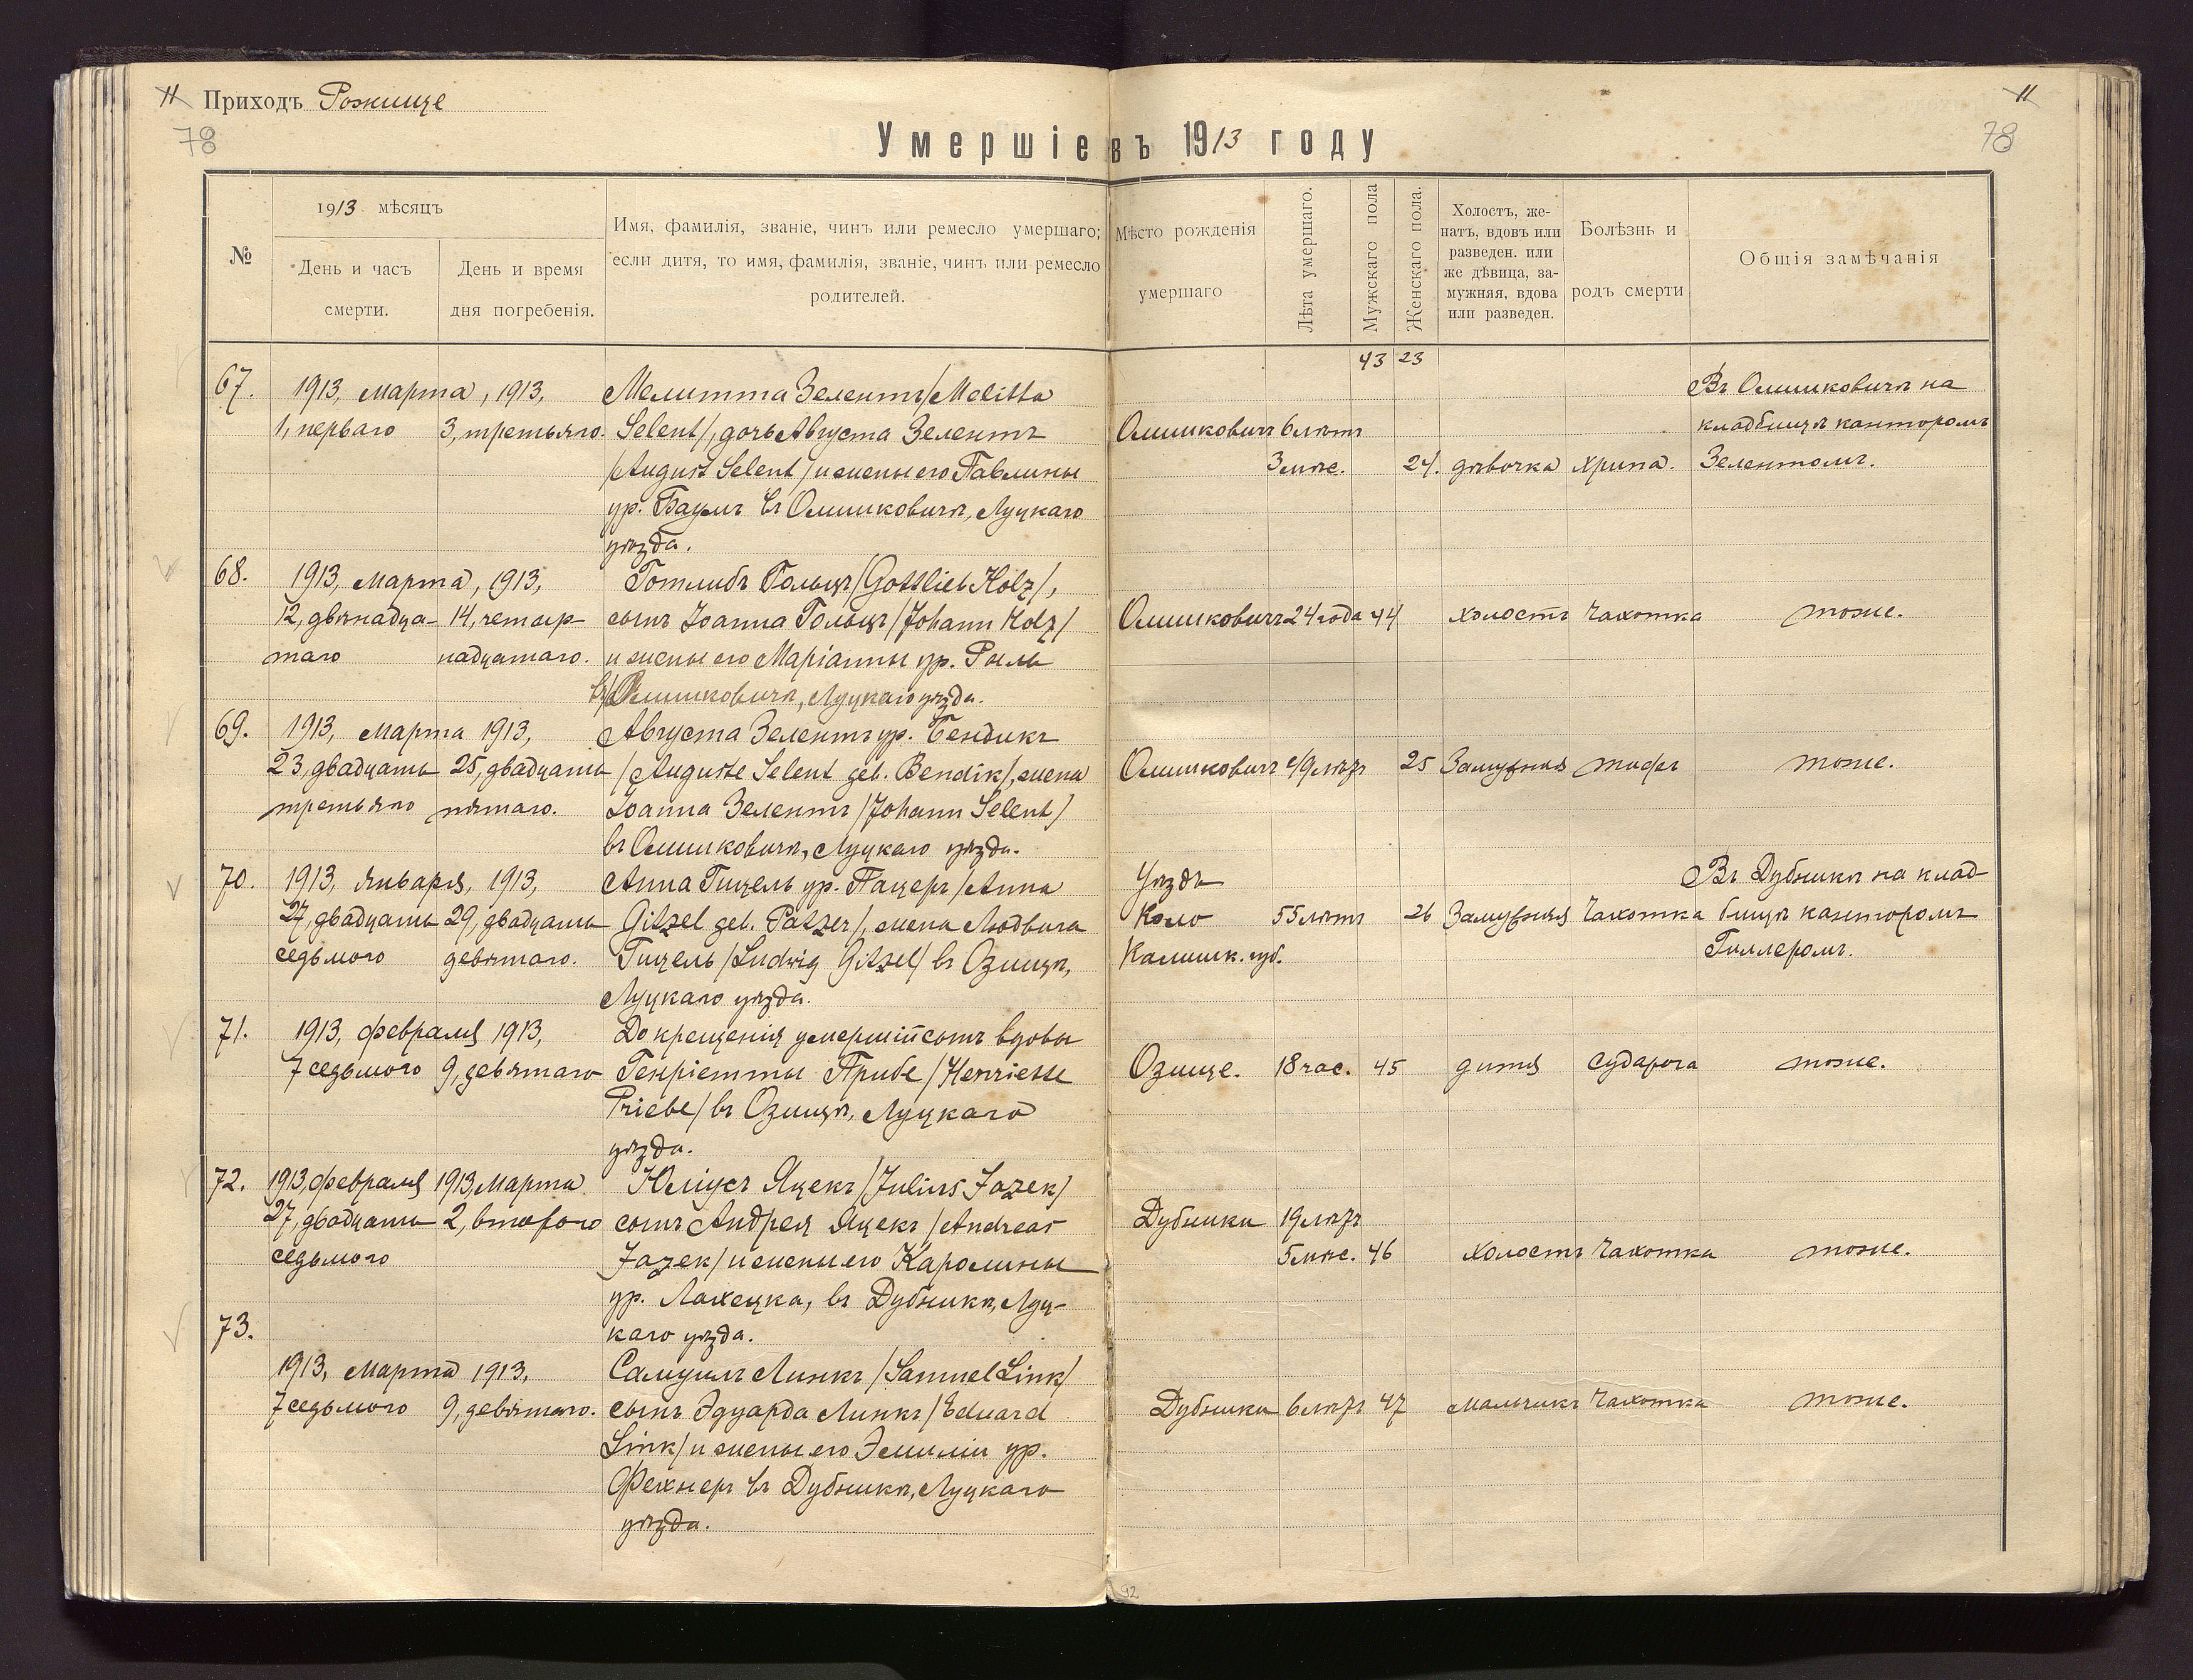 11 Приходъ Рожище
78
11
78
Умершіе въ 1913 году
№
1913 мѣсяцъ
День и часъ смерти.
День и время дня погребенія.
Имя, фамилія, званіе, чинъ или ремесло умершаго;
если дитя, то имя, фамилія, званіе, чинъ или ремесло
родителей.
Мѣсто рожденія
умершаго
Лѣта умершаго.
Мужскаго пола
Женскаго пола.
Холостъ, же-
натъ, вдовъ или
разведен. или
же дѣвица, за-
мужняя, вдова
или разведен.
Болѣзнь и
родъ смерти
Общія замѣчанія
43 23
67. 1913, Марта, 1913, Мелитта Зелентъ /Melitta Въ Олишковичѣ на
1, перваго 3, третьяго. Selent/, дочь Августа Зелентъ Олишковичъ 6 лѣтъ кладбищѣ канторомъ
/August Selent/ и жены его Павлины 3 мѣс. 24. дѣвочка хрипа. Зелентомъ.
ур. Баумъ въ Олишковичѣ, Луцкаго
уѣзда.
68. 1913, Марта, 1913, Готлибъ Гольцъ /Gottlieb Holz/,
12, двѣнадца- 14, четыр- сынъ Іоанна Гольцъ /Johann Holz/ Олишковичъ 24 года 44 холостъ Чахотка тоже.
таго надцатаго. и жены его Маріанны ур. Рыль
въ Олишковичѣ, Луцкаго уѣзда.
69. 1913, Марта 1913, Августа Зелентъ ур. Бендикъ
23, двадцать 25, двадцать /Auguste Selent geb. Bendik/, жена Олишковичъ 49 лѣтъ 25 Замужняя тифъ тоже.
третьяго пятаго. Іоанна Зелентъ /Johann Selent/
въ Олишковичѣ, Луцкаго уѣзда.
70. 1913, Января, 1913, Анна Гицель ур. Пацеръ /Anna Уѣздъ Въ Дубники на клад-
27, двадцать 29, двадцать Gitzel geb. Patzer/, жена Людвига Коло 55 лѣтъ 26 Замужняя Чахотка бищѣ канторомъ
седьмого девятаго. Гицель /Ludwig Gitzel/ въ Озищѣ, Калишк. губ. Гиллеромъ.
Луцкаго уѣзда.
71. 1913, Февраля 1913, До крещенія умершій сынъ вдовы
7 седьмого 9, девятаго Генріетты Прибе /Henriette Озище. 18 час. 45 дитя Судорога тоже.
Priebe/ въ Озищѣ, Луцкаго
уѣзда.
72. 1913, Февраля 1913, Марта Юліусъ Яцекъ /Julius Jazek/
27, двадцать 2, второго сынъ Андрея Яцекъ /Andreas Дубники 19 лѣтъ
седьмого Jazek/ и жены его Каролины 5 мѣс. 46 холостъ Чахотка тоже.
ур. Лахецка, въ Дубники, Луц-
каго уѣзда.
73.
1913, Марта 1913, Самуилъ Линкъ /Samuel Link/
7 седьмого 9, девятаго. сынъ Эдуарда Линкъ /Eduard Дубники 6 лѣтъ 47 мальчикъ Чахотка тоже.
Link/ и жены его Эмиліи ур.
Фехнеръ въ Дубники, Луцкаго
уѣзда.
92